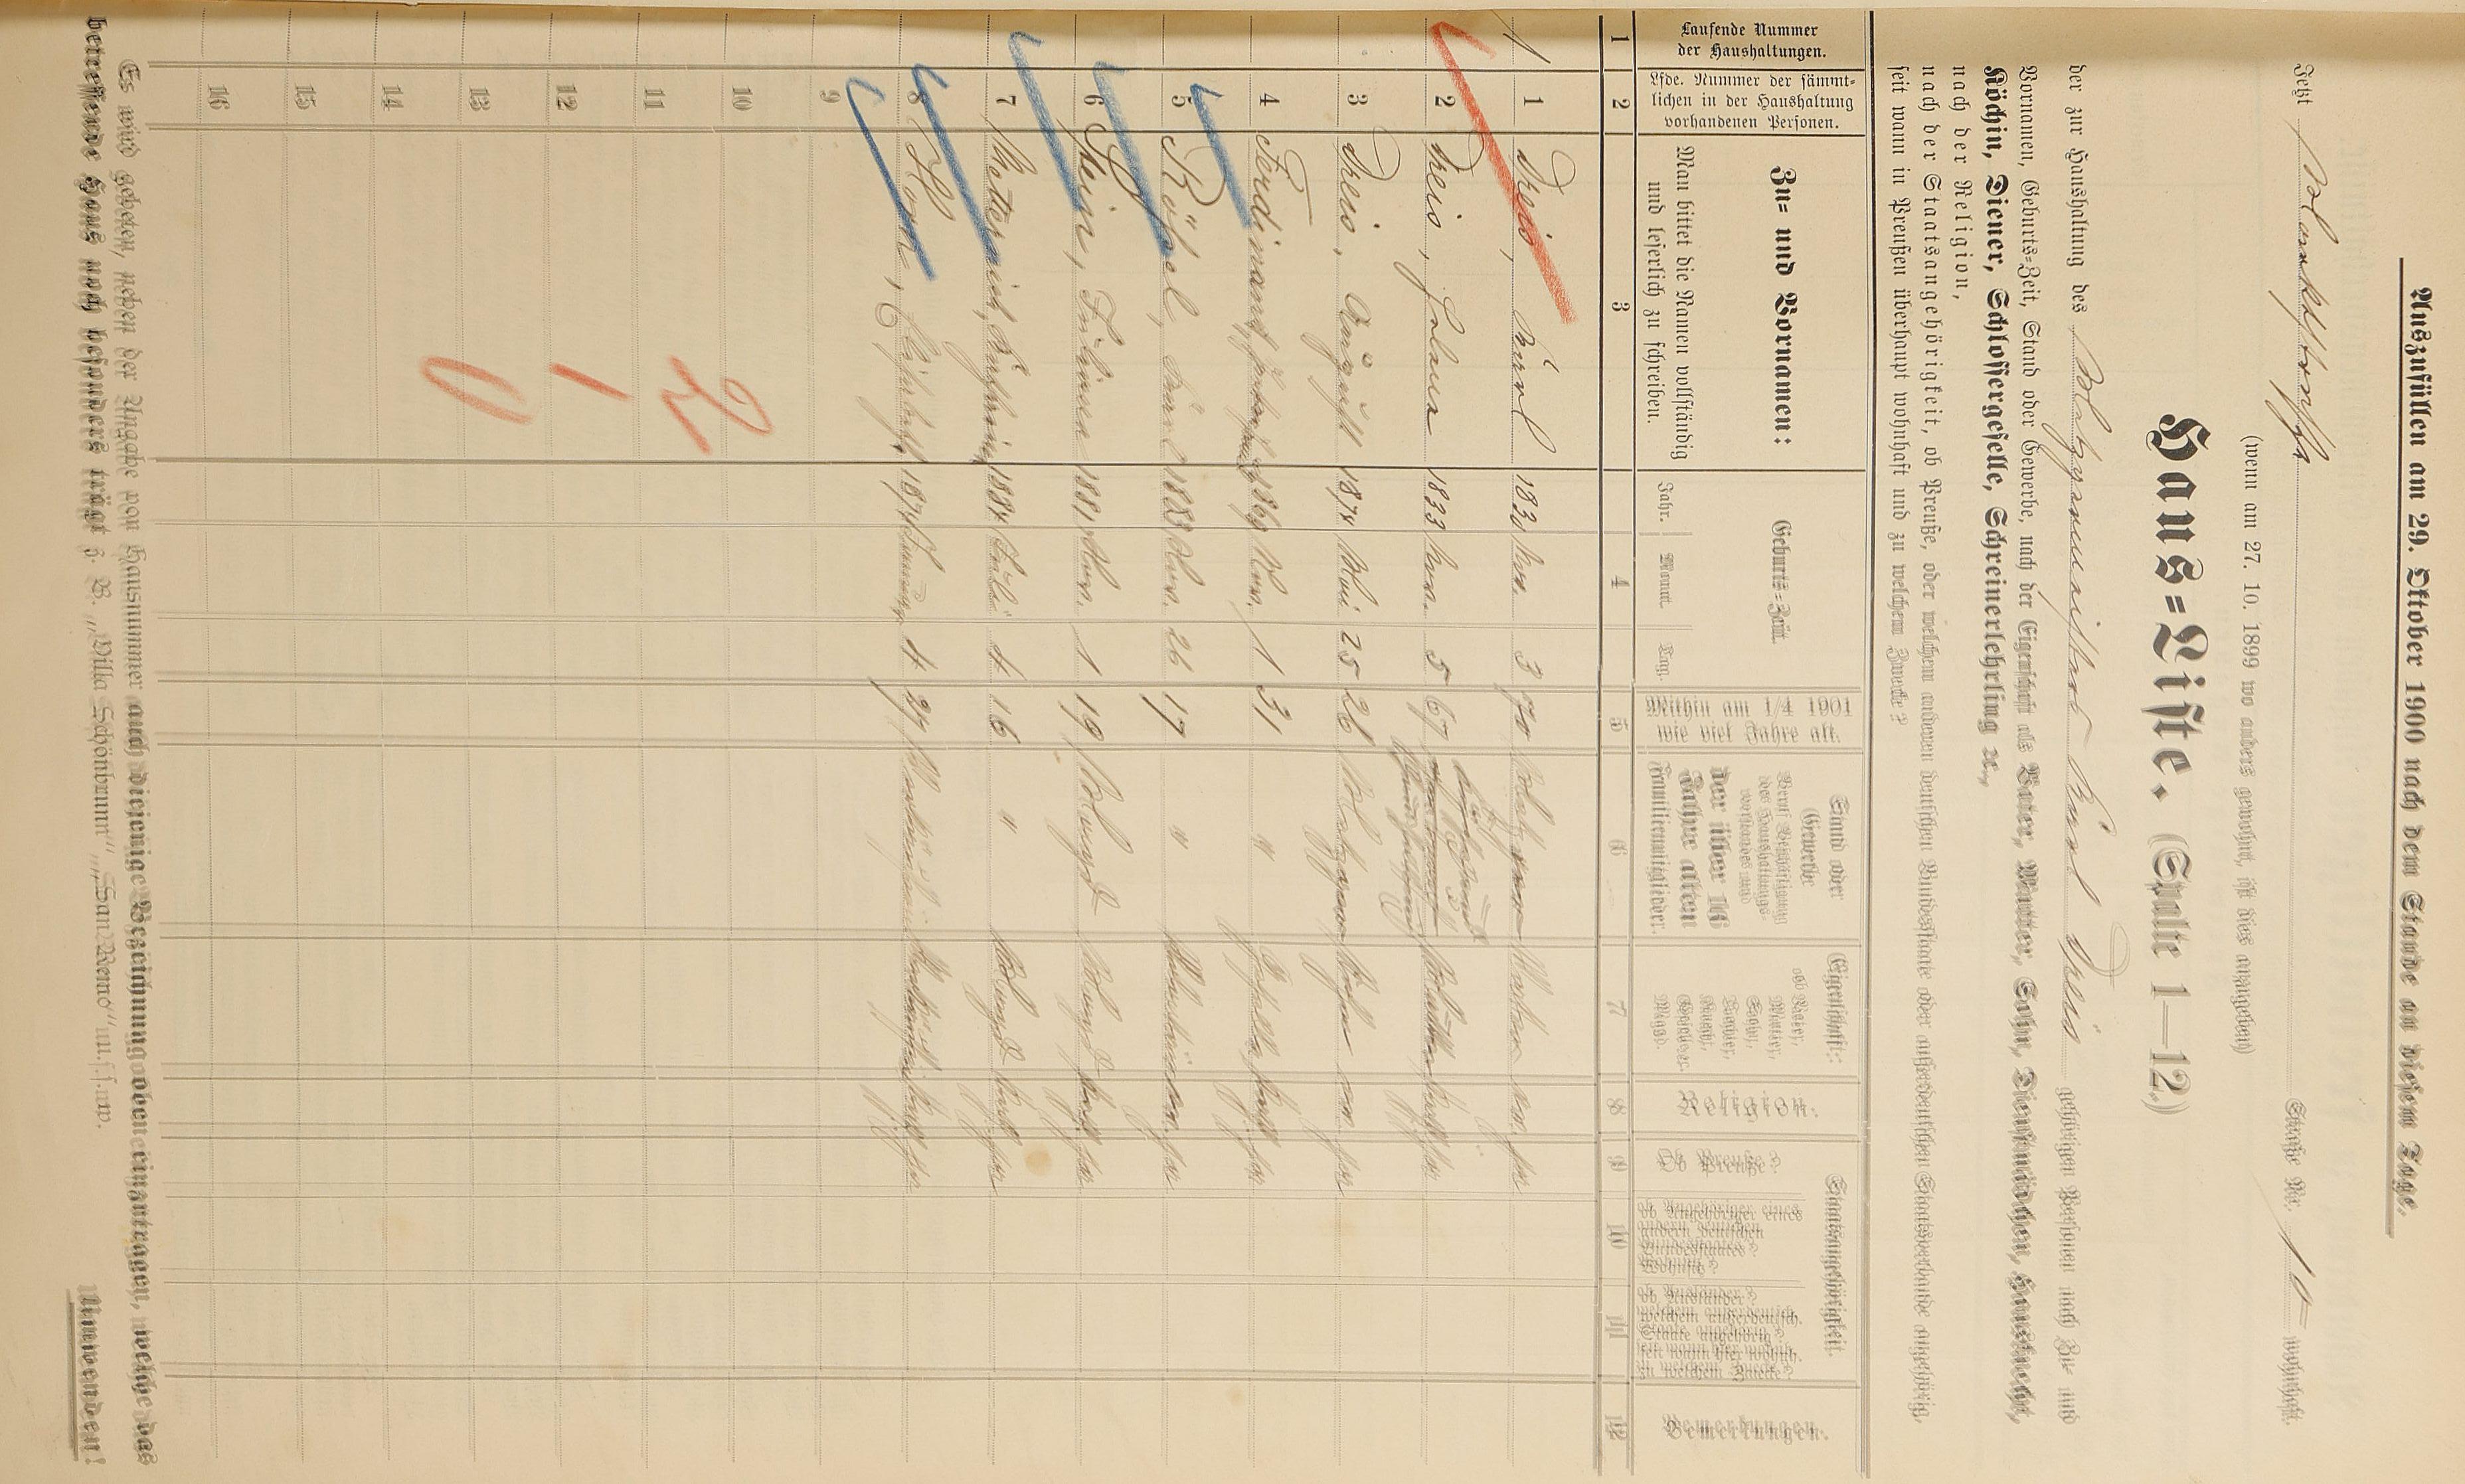 Auszufüllen am 29. Oktober 1900 nach dem Stande an diesem Tage.
Jetzt Straße Nr. 10 wohnhaft.
(wenn am 27. 10. 1899 wo anders gewohnt, ist dies anzugeben)
Haus=Liste. (Spalte 1—12.)
der zur Haushaltung des Metzgermeisters Karl Dreis gehörigen Personen nach Zu= und
Vornamen, Geburts=Zeit, Stand oder Gewerbe, nach der Eigenschaft als Vater, Mutter, Sohn, Dienstmädchen, Hausknecht,
Köchin, Diener, Schlossergeselle, Schreinerlehrling ꝛc.,
nach der Religion,
nach der Staatsangehörigkeit, ob Preuße, oder welchem anderen deutschen Bundesstaate oder außerdeutschen Staatsverbande angehörig,
seit wann in Preußen überhaupt wohnhaft und zu welchem Zwecke?
Laufende Nummer
der Haushaltungen.
Lfde. Nummer der sämmt=
lichen in der Haushaltung
vorhandenen Personen.
Zu= und Vornamen:
Man bittet die Namen vollständig
und leserlich zu schreiben.
Geburts=Zeit.
Jahr.
Monat.
Tag.
Mithin am 1/4 1901
wie viel Jahre alt.
Stand oder
Gewerbe
Beruf Beschäftigung
des Haushaltungs=
vorstandes und
der über 16
Jahre alten
Familienmitglieder.
Eigenschaft:
ob Vater,
Mutter,
Sohn,
Tochter,
Knecht,
Geselle,
Magd.
Religion.
Staatsangehörigkeit.
Ob Preuße?
ob Angehöriger eines
andern deutschen
Bundesstaates?
Welches?
ob Ausländer?
welchem außerdeutsch.
Staate angehörig?
seit wann hier wohnh.
zu welchem Zwecke?
Bemerkungen.
1 2 3 4 5 6 7 8 9 10 11 12
1 1 Dreis, Karl 1830 3 70 Metzger Vater ev. ja
2 Dreis, Helena 1833 5 67 Mutter kath ja
3 Dreis, August 1874 Mai 25 26 Metzger Sohn ev ja
4 Ferdinand, 1869 Nov. 1 31 " Geselle kath ja
5 Röpel, Karl 1883 26 17 " ev. ja
6 Stein, Juliana 1881 1 19 Magd Magd kath ja
7 Metternich, Katharina 1884 Juli 4 16 " Magd kath ja
8 Horn, Elisabeth 1874 Januar 4 27 Verkäuferin Verkäuferin kath ja
9
10
2
11
12
1
13
0
14
15
16
Es wird gebeten, neben der Angabe von Hausnummer auch diejenige Bezeichnung oben einzutragen, welche das
betreffende Haus noch besonders trägt z. B. „Villa Schönbrunn“, „San Remo“ u. s. w.
Umwenden!